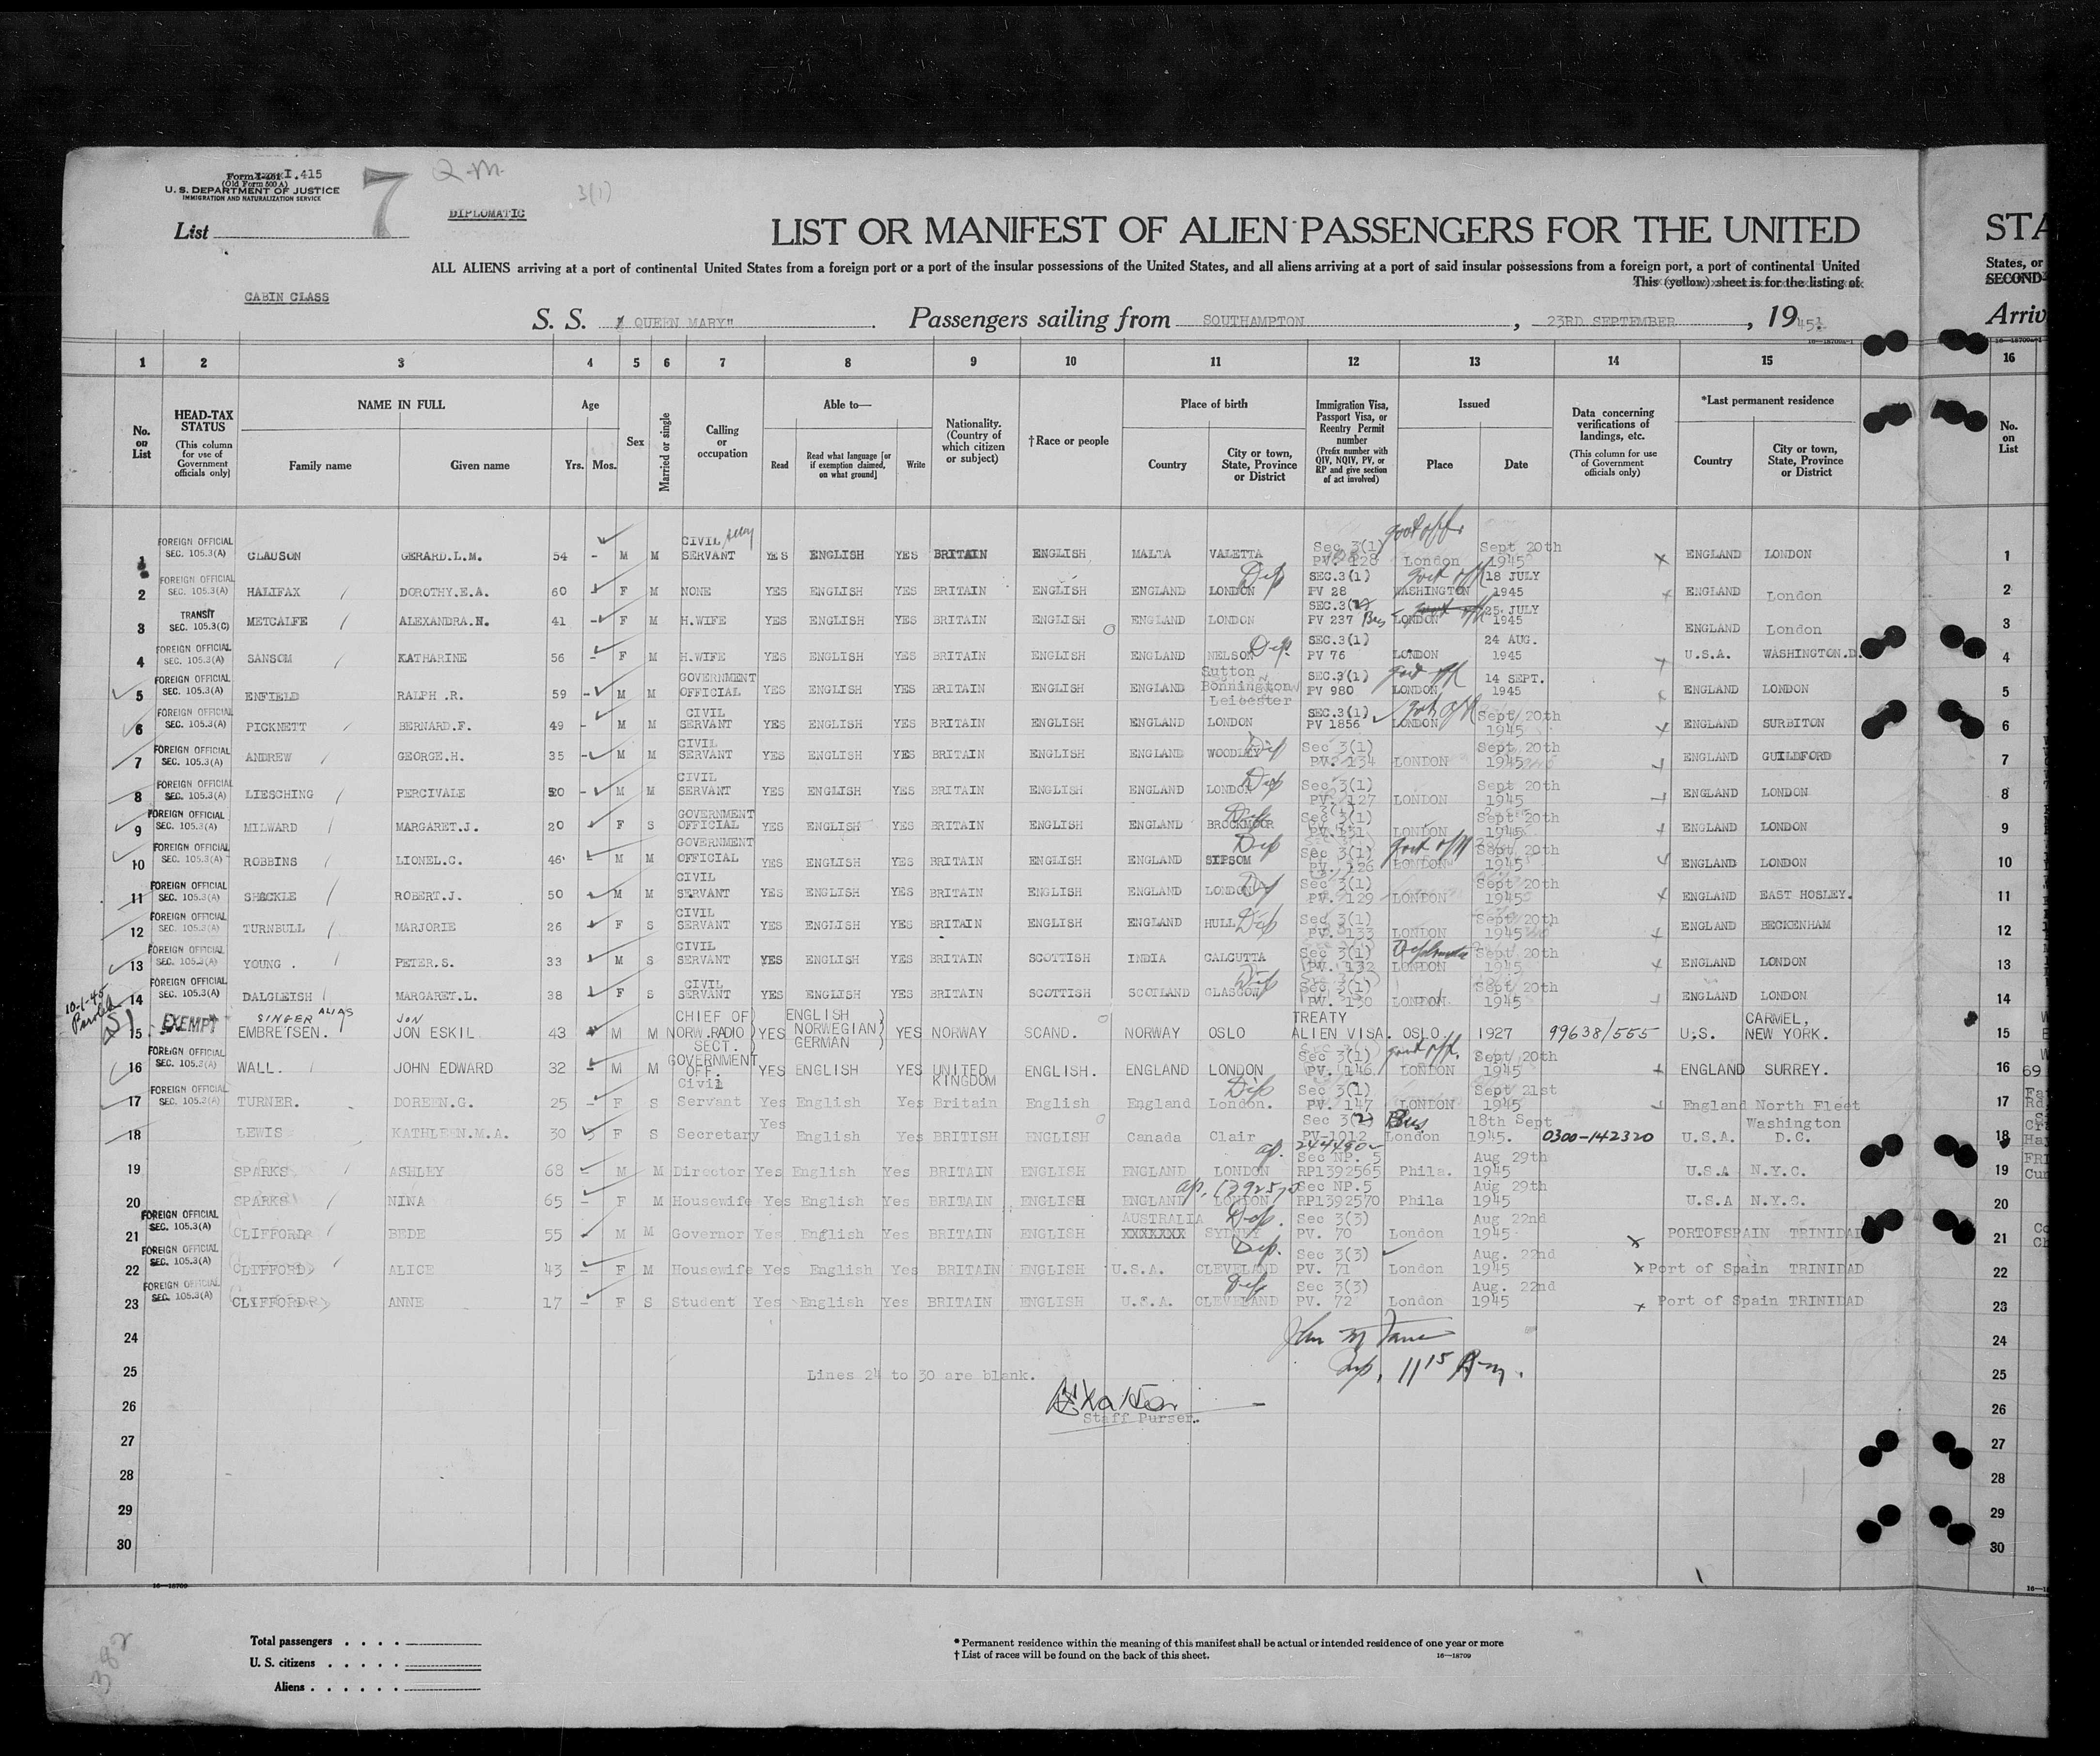 Form I-461 I.415
(Old Form 500 A)
U. S. DEPARTMENT OF JUSTICE
IMMIGRATION AND NATURALIZATION SERVICE
List 7
Q.M.
3(1)
DIPLOMATIC
LIST OR MANIFEST OF ALIEN PASSENGERS FOR THE UNITED
STA
ALL ALIENS arriving at a port of continental United States from a foreign port or a port of the insular possessions of the United States, and all aliens arriving at a port of said insular possessions from a foreign port, a port of continental United
States, or
This (yellow) sheet is for the listing of
SECOND-
CABIN CLASS
S. S. "QUEEN MARY". Passengers sailing from SOUTHAMPTON, 23RD SEPTEMBER, 1945.
Arriv
1 2 3 4 5 6 7 8 9 10 11 12 13 14 15 16
No. on List
HEAD-TAX STATUS (This column for use of Government officials only)
NAME IN FULL Family name Given name
Age Yrs. Mos.
Sex
Married or single
Calling or occupation
Able to— Read Read what language [or if exemption claimed, on what ground] Write
Nationality. (Country of which citizen or subject)
†Race or people
Place of birth Country City or town, State, Province or District
Immigration Visa, Passport Visa, or Reentry Permit number (Prefix number with QIV, NQIV, PV, or RP and give section of act involved)
Issued Place Date
Data concerning verifications of landings, etc. (This column for use of Government officials only)
*Last permanent residence Country City or town, State, Province or District
No. on List
1 FOREIGN OFFICIAL SEC. 105.3(A) CLAUSON GERARD.L.M. 54 - M M CIVIL SERVANT YES ENGLISH YES BRITAIN ENGLISH MALTA VALETTA Sec 3(1) PV. 128 Govt offr London Sept 20th 1945 x ENGLAND LONDON 1
2 FOREIGN OFFICIAL SEC. 105.3(A) HALIFAX DOROTHY.E.A. 60 F M NONE YES ENGLISH YES BRITAIN ENGLISH ENGLAND LONDON Dip SEC.3(1) PV 28 Govt off WASHINGTON 18 JULY 1945 x ENGLAND London 2
3 TRANSIT SEC. 105.3(C) METCALFE ALEXANDRA.N. 41 - F M H.WIFE YES ENGLISH YES BRITAIN ENGLISH ENGLAND LONDON SEC.3(2) PV 237 Bus LONDON 25 JULY 1945 ENGLAND London 3
4 FOREIGN OFFICIAL SEC. 105.3(A) SANSOM KATHARINE 56 - F M H.WIFE YES ENGLISH YES BRITAIN ENGLISH ENGLAND NELSON Dip. SEC.3(1) PV 76 LONDON 24 AUG. 1945 U.S.A. WASHINGTON.D. 4
5 FOREIGN OFFICIAL SEC. 105.3(A) ENFIELD RALPH.R. 59 - M M GOVERNMENT OFFICIAL YES ENGLISH YES BRITAIN ENGLISH ENGLAND Sutton Bonnington Leicester SEC.3(1) PV 980 Govt off LONDON 14 SEPT. 1945 x ENGLAND LONDON 5
6 FOREIGN OFFICIAL SEC. 105.3(A) PICKNETT BERNARD.F. 49 - M M CIVIL SERVANT YES ENGLISH YES BRITAIN ENGLISH ENGLAND LONDON SEC.3(1) PV 1856 Govt off LONDON Sept 20th 1945 x ENGLAND SURBITON 6
7 FOREIGN OFFICIAL SEC. 105.3(A) ANDREW GEORGE.H. 35 - M M CIVIL SERVANT YES ENGLISH YES BRITAIN ENGLISH ENGLAND WOODLEY Dip Sec 3(1) PV. 134 LONDON Sept 20th 1945 ENGLAND GUILDFORD 7
8 FOREIGN OFFICIAL SEC. 105.3(A) LIESCHING PERCIVALE 50 - M M CIVIL SERVANT YES ENGLISH YES BRITAIN ENGLISH ENGLAND LONDON Dip Sec 3(1) PV. 127 LONDON Sept 20th 1945 ENGLAND LONDON 8
9 FOREIGN OFFICIAL SEC. 105.3(A) MILWARD MARGARET.J. 20 F S GOVERNMENT OFFICIAL YES ENGLISH YES BRITAIN ENGLISH ENGLAND BROCKMOOR Dip Sec 3(1) PV. 131 LONDON Sept 20th 1945 ENGLAND LONDON 9
10 FOREIGN OFFICIAL SEC. 105.3(A) ROBBINS LIONEL.C. 46 M M GOVERNMENT OFFICIAL YES ENGLISH YES BRITAIN ENGLISH ENGLAND SIPSOM Dip Sec 3(1) PV. 126 Govt off LONDON Sept 20th 1945 ENGLAND LONDON 10
11 FOREIGN OFFICIAL SEC. 105.3(A) SHACKLE ROBERT.J. 50 M M CIVIL SERVANT YES ENGLISH YES BRITAIN ENGLISH ENGLAND LONDON Dip Sec 3(1) PV. 129 LONDON Sept 20th 1945 x ENGLAND EAST HOSLEY. 11
12 FOREIGN OFFICIAL SEC. 105.3(A) TURNBULL MARJORIE 26 F S CIVIL SERVANT YES ENGLISH YES BRITAIN ENGLISH ENGLAND HULL Dip Sec 3(1) PV. 133 LONDON Sept 20th 1945 ENGLAND BECKENHAM 12
13 FOREIGN OFFICIAL SEC. 105.3(A) YOUNG. PETER.S. 33 M S CIVIL SERVANT YES ENGLISH YES BRITAIN SCOTTISH INDIA CALCUTTA Sec 3(1) PV. 132 LONDON Sept 20th 1945 x ENGLAND LONDON 13
14 FOREIGN OFFICIAL SEC. 105.3(A) DALGLEISH MARGARET.L. 38 F S CIVIL SERVANT YES ENGLISH YES BRITAIN SCOTTISH SCOTLAND GLASGOW Dip Sec 3(1) PV. 130 LONDON Sept 20th 1945 ENGLAND LONDON 14
10-1-45 Paroled
15 EXEMPT SINGER ALIAS JON EMBRETSEN. JON ESKIL 43 M M CHIEF OF NORW.RADIO SECT. YES ENGLISH NORWEGIAN GERMAN YES NORWAY SCAND. NORWAY OSLO TREATY ALIEN VISA. OSLO. 1927 99638/555 U.S. CARMEL, NEW YORK. 15
16 FOREIGN OFFICIAL SEC. 105.3(A) WALL. JOHN EDWARD 32 - M M GOVERNMENT OFF. YES ENGLISH YES UNITED KINGDOM ENGLISH. ENGLAND LONDON Sec 3(1) PV. 146 Govt off. LONDON Sept 20th 1945 ENGLAND SURREY. 16 69
17 FOREIGN OFFICIAL SEC. 105.3(A) TURNER. DOREEN.G. 25 - F S Civil Servant Yes English Yes Britain English England London. Dip Sec 3(1) PV. 147 LONDON Sept 21st 1945 England North Fleet 17
18 LEWIS KATHLEEN.M.A. 30 F S Secretary Yes English Yes BRITISH ENGLISH Canada Clair Sec 3(2) PV-1012 Bus. London 18th Sept 1945. 0300-142320 U.S.A. Washington D.C. 18
19 SPARKS ASHLEY 68 M M Director Yes English Yes BRITAIN ENGLISH ENGLAND LONDON Sec NP. 5 RP1392565 Phila. Aug 29th 1945 U.S.A N.Y.C. 19
20 SPARKS NINA 65 - F M Housewife Yes English Yes BRITAIN ENGLISH ENGLAND LONDON ap. 1392570 Sec NP.5 RP1392570 Phila Aug 29th 1945 U.S.A N.Y.C. 20
21 FOREIGN OFFICIAL SEC. 105.3(A) CLIFFORD BEDE 55 M M Governor Yes English Yes BRITAIN ENGLISH AUSTRALIA XXXXXXX SYDNEY Dip. Sec 3(3) PV. 70 London Aug 22nd 1945 x PORTOFSPAIN TRINIDAD 21
22 FOREIGN OFFICIAL SEC. 105.3(A) CLIFFORD ALICE 43 - F M Housewife Yes English Yes BRITAIN ENGLISH U.S.A. CLEVELAND Dip. Sec 3(3) PV. 71 London Aug. 22nd 1945 x Port of Spain TRINIDAD 22
23 FOREIGN OFFICIAL SEC. 105.3(A) CLIFFORD ANNE 17 - F S Student Yes English Yes BRITAIN ENGLISH U.S.A. CLEVELAND Dip Sec 3(3) PV. 72 London Aug. 22nd 1945 x Port of Spain TRINIDAD 23
24 24
25 Lines 24 to 30 are blank. Insp. 11 15 Am. 25
26 Staff Purser. 26
27 27
28 28
29 29
30 30
16—18709
Total passengers
U. S. citizens
Aliens
* Permanent residence within the meaning of this manifest shall be actual or intended residence of one year or more
† List of races will be found on the back of this sheet.
16—18709
382